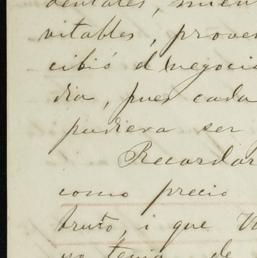 dentales, inevi
vitables, prove
cibió el negocio
dia, pues cada
pudiera ser
Recordar
como precio
bruto, i que V
no tenia de